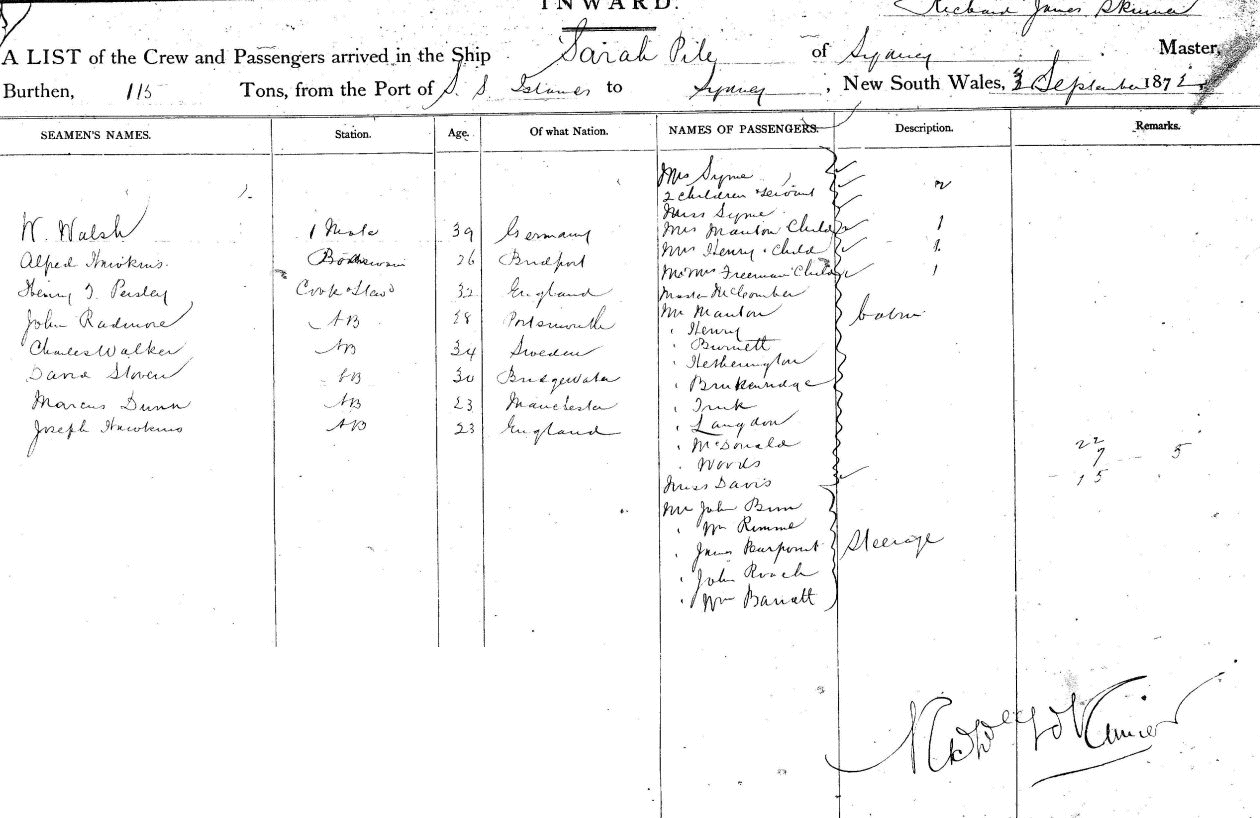 INWARD.
Richard James Skinner
A LIST of the Crew and Passengers arrived in the Ship Sarah Pile of Sydney Master,
Burthen, 115 Tons, from the Port of S. S. Islands to Sydney, New South Wales, September 1872
SEAMEN'S NAMES. Station. Age. Of what Nation. NAMES OF PASSENGERS. Description. Remarks.
Mrs Syme
2 children & servant 2
Miss Syme
W. Walsh 1 Mate 39 Germany Mrs Manton Child 1
Alfred Hawkins 26 Bridport Mrs Henry & Child 1
Mr Mrs Freeman Child 1
Henry J. Persley Cook & Stewd 32 England Master McComber
Mr Manton Cabin
John Radmore AB 28 Portsmouth " Henry
Charles Walker AB 34 Sweden " Burnett
" Hetherington
David Stoven AB 30 Bridgewater " Brukenridge
Marcus Dunn AB 23 Manchester " Trunk
Joseph Hawkins AB 23 England " Langdon
" McDonald 22
" Woods 7 5
Miss Davis 15
Mr John Bunn
" Wm Rimme
" James Pearpoint Steerage
" John Roach
" Wm Barratt